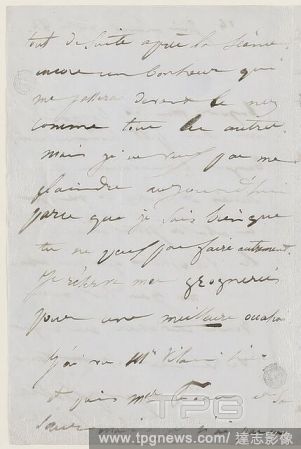 tout de suite après la séance
encore un bonheur qui
me passera devant le nez
comme tous les autres.
mais je ne veux pas me
plaindre aujourd'hui
parce que je sais bien que
tu ne peux pas faire autrement.
Je réserve mes grogneries
pour une meilleure occasion
J'ai vu Mr
et puis Mme
TPG
www.tpgnews.com / 達志影像